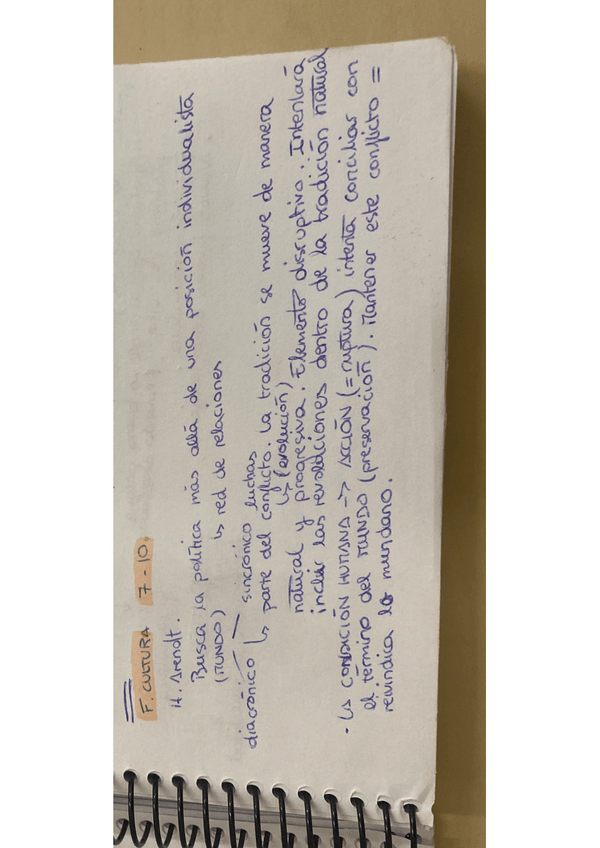 F. CULTURA 7-10.
H. Arendt.
Busca la política más allá de una posición individualista
(MUNDO) ↳ red de relaciones
diacrónico – sincrónico luchas
↳ parte del conflicto. La tradición se mueve de manera
↳ (evolución)
natural y progresiva. Elemento disruptivo. Intentará
incluir las revoluciones dentro de la tradición natural
- LA CONDICIÓN HUMANA -> ACCIÓN (= ruptura) intenta conciliar con
el término del MUNDO (preservación). Mantener este conflicto =
reivindica lo mundano.